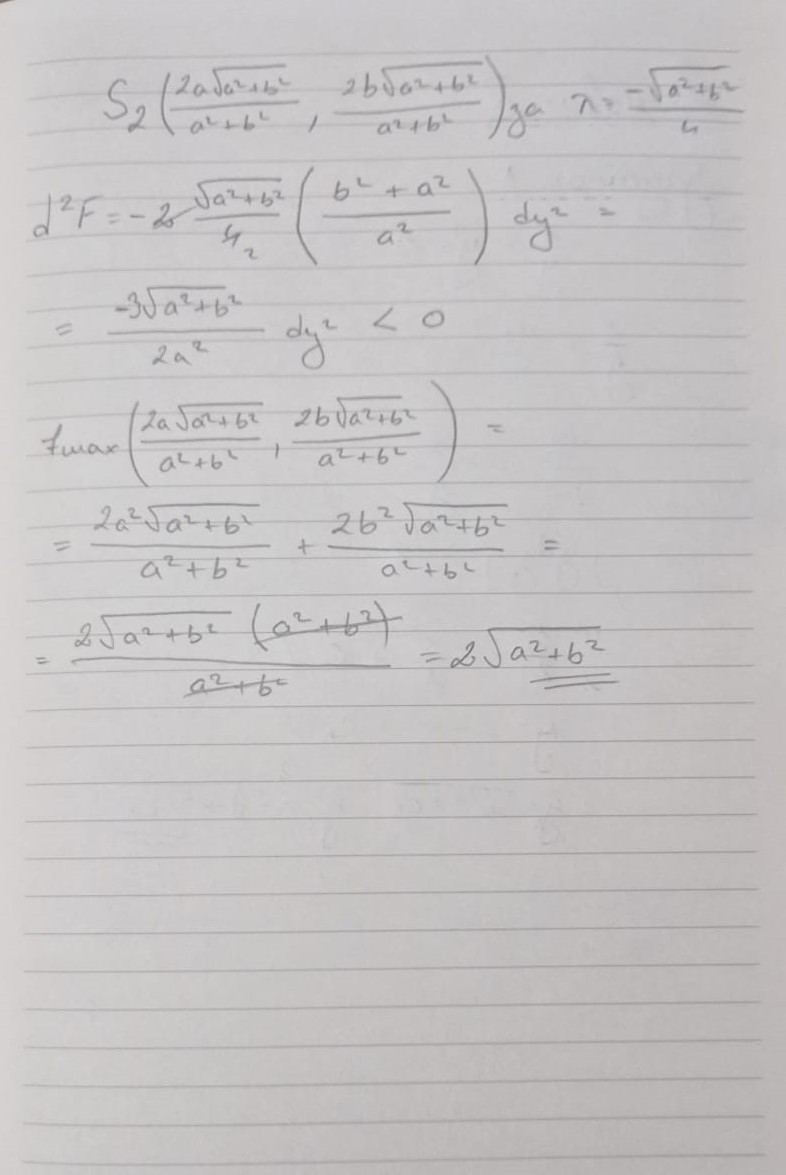 S₂ (2a√(a²+b²) / (a²+b²), 2b√(a²+b²) / (a²+b²)) za λ = -√(a²+b²) / 4
d²F = -2 √(a²+b²) / 4 2 ((b² + a²) / a²) dy² =
= -3√(a²+b²) / 2a² dy² < 0
fmax (2a√(a²+b²) / (a²+b²), 2b√(a²+b²) / (a²+b²)) =
= 2a²√(a²+b²) / (a²+b²) + 2b²√(a²+b²) / (a²+b²) =
= 2√(a²+b²) (a²+b²) / (a²+b²) = 2√(a²+b²)